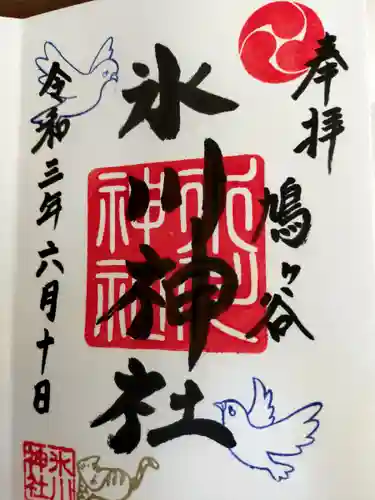 奉拝
鳩ヶ谷
氷川神社
氷川神社
令和三年六月十日
氷川神社